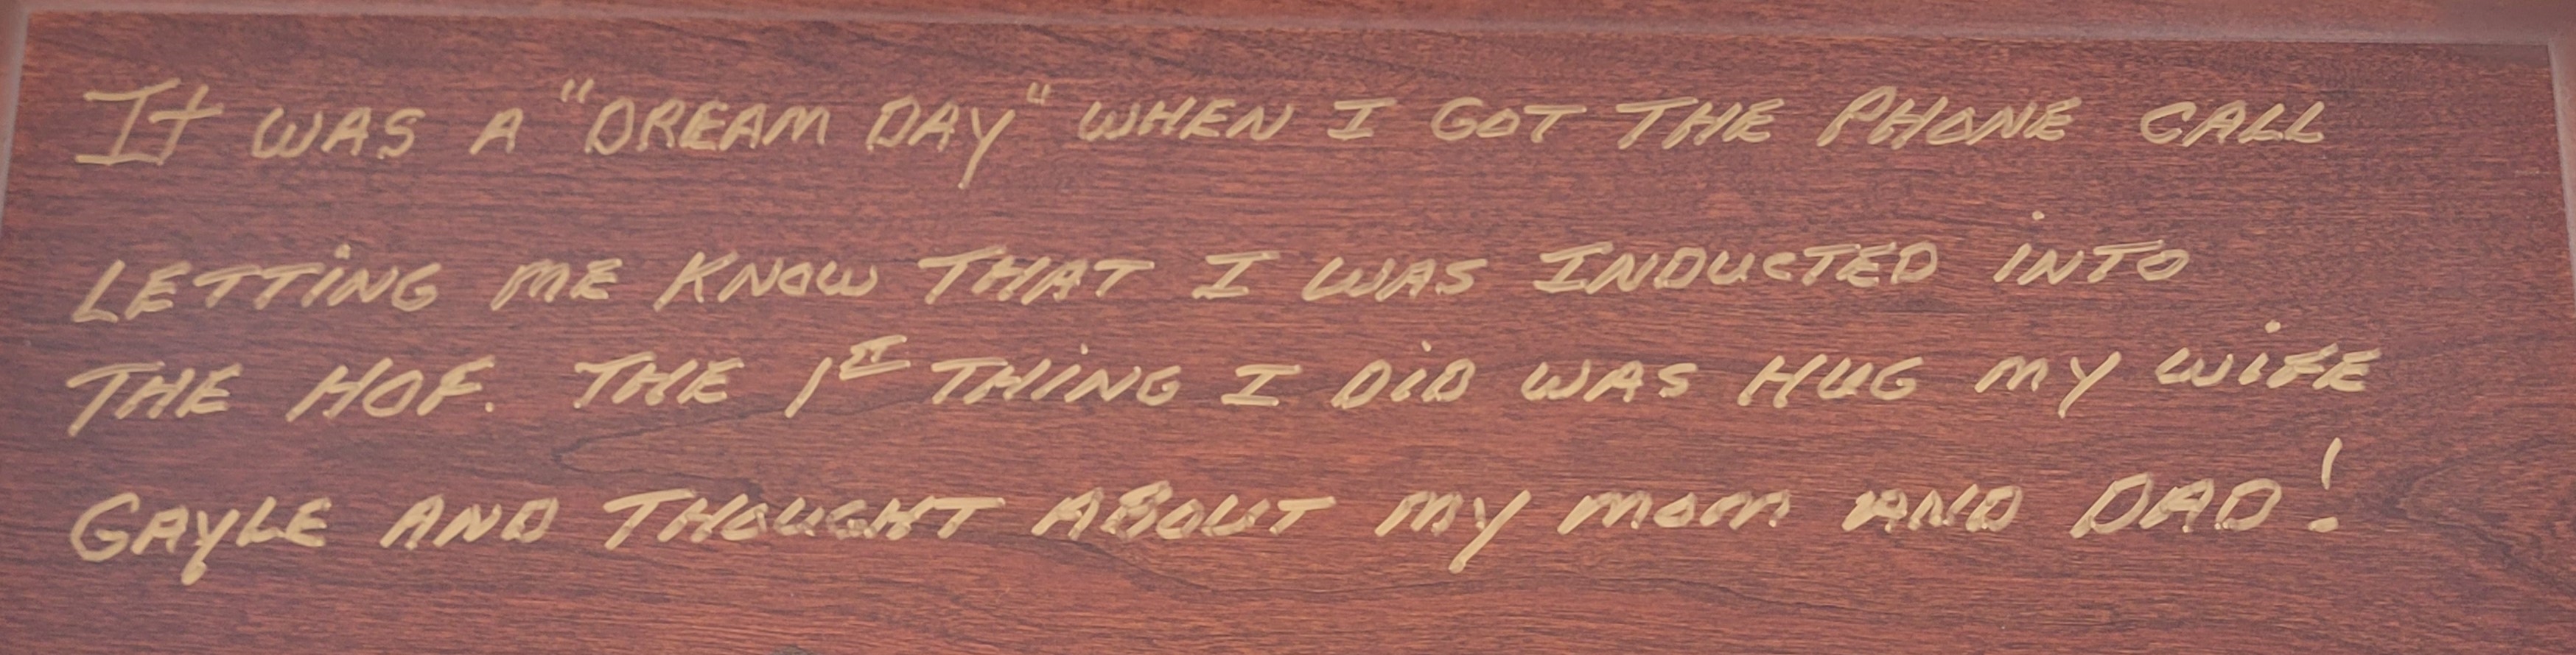 It WAS A "DREAM DAY" WHEN I GOT THE PHONE CALL
LETTiNG ME KNOW THAT I WAS INDUCTED iNTO
THE HOF. THE 1ST THiNG I DiD WAS HUG MY WiFE
GAYLE AND THOUGHT ABOUT MY MOM AND DAD!